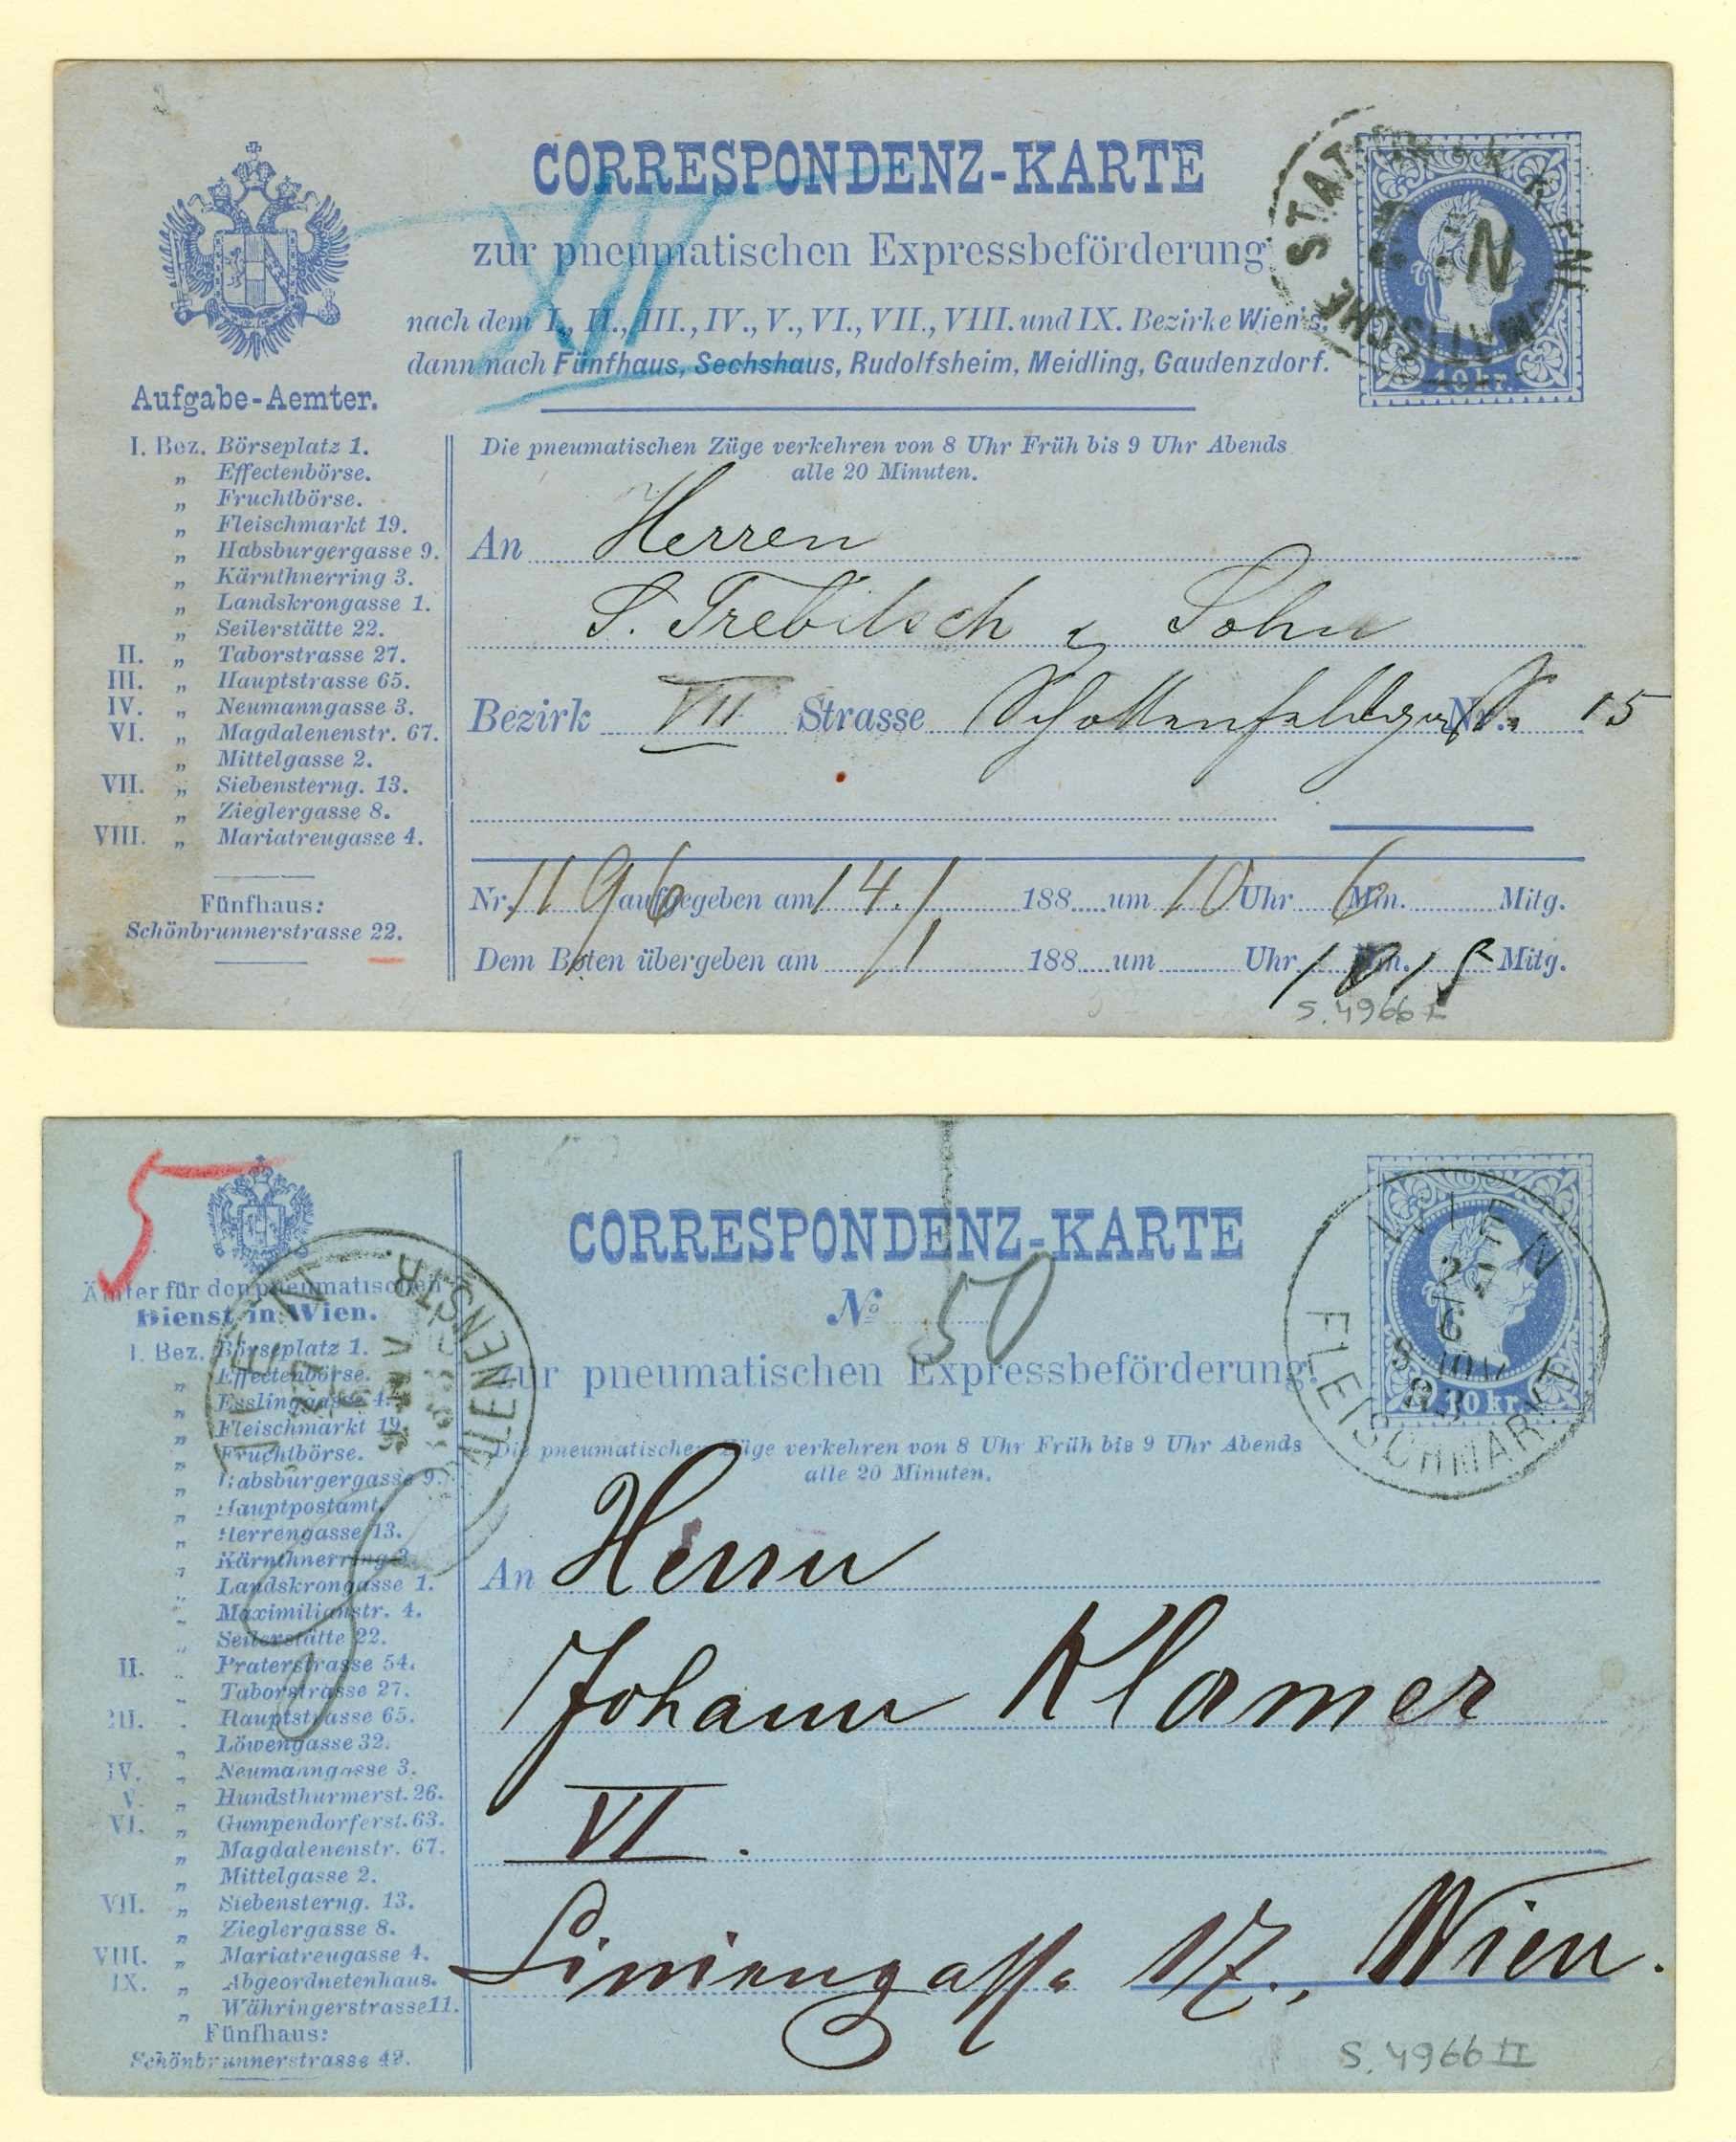 CORRESPONDENZ-KARTE
zur pneumatischen Expressbeförderung
nach dem I., II., III., IV., V., VI., VII., VIII. und IX. Bezirke Wien's,
dann nach Fünfhaus, Sechshaus, Rudolfsheim, Meidling, Gaudenzdorf.
10 kr.
Aufgabe-Aemter.
I. Bez. Börseplatz 1.
„ Effectenbörse.
„ Fruchtbörse.
„ Fleischmarkt 19.
„ Habsburgergasse 9.
„ Kärnthnerring 3.
„ Landskrongasse 1.
„ Seilerstätte 22.
II. „ Taborstrasse 27.
III. „ Hauptstrasse 65.
IV. „ Neumanngasse 3.
VI. „ Magdalenenstr. 67.
„ Mittelgasse 2.
VII. „ Siebensterng. 13.
„ Zieglergasse 8.
VIII. „ Mariatreugasse 4.
Fünfhaus:
Schönbrunnerstrasse 22.
Die pneumatischen Züge verkehren von 8 Uhr Früh bis 9 Uhr Abends
alle 20 Minuten.
An Herren
S. Trebitsch & Sohn
Bezirk VII Strasse Schottenfeldgasse Nr. 15
Nr. 1196 aufgegeben am 14./1 188 um 10 Uhr 6 Min. Mitg.
Dem Boten übergeben am /1 188 um Uhr 10 15 Min. Mitg.
S. 4966 I
5
CORRESPONDENZ-KARTE
No 50
zur pneumatischen Expressbeförderung!
WIEN
FLEISCHMARKT
10 kr.
Ämter für den pneumatischen
Dienst in Wien.
I. Bez. Börseplatz 1.
„ Effectenbörse.
„ Esslinggasse 4.
„ Fleischmarkt 19.
„ Fruchtbörse.
„ Habsburgergasse 9.
„ Hauptpostamt.
„ Herrengasse 13.
„ Kärnthnerring 3.
„ Landskrongasse 1.
„ Maximilianstr. 4.
„ Seilerstätte 22.
II. „ Praterstrasse 54.
„ Taborstrasse 27.
III. „ Hauptstrasse 65.
„ Löwengasse 32.
IV. „ Neumanngasse 3.
V. „ Hundsthurmerst. 26.
VI. „ Gumpendorferst. 63.
„ Magdalenenstr. 67.
„ Mittelgasse 2.
VII. „ Siebensterng. 13.
„ Zieglergasse 8.
VIII. „ Mariatreugasse 4.
IX. „ Abgeordnetenhaus.
„ Währingerstrasse 11.
Fünfhaus:
Schönbrunnerstrasse 42.
Die pneumatischen Züge verkehren von 8 Uhr Früh bis 9 Uhr Abends
alle 20 Minuten.
An Herrn
Johann Klamer
VI.
Liniengasse 17., Wien.
S. 4966 II